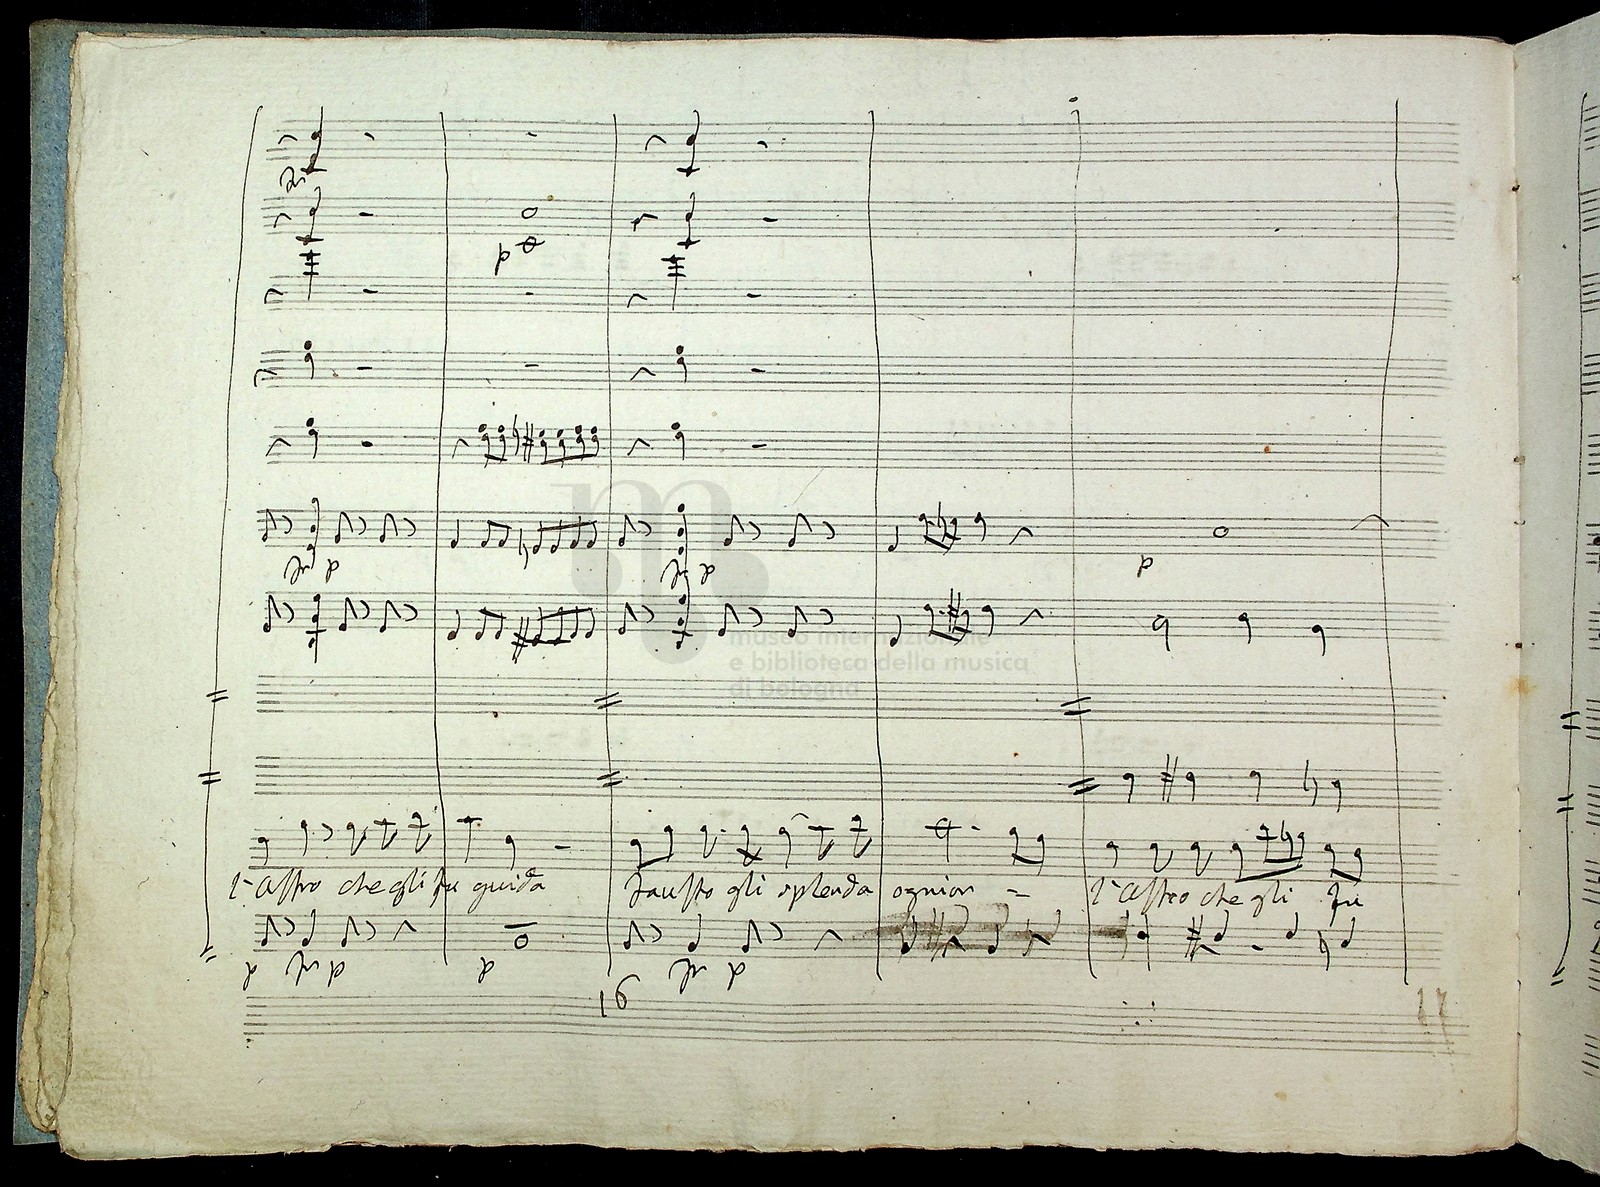 fr
p
fr p
fr p
p
museo internazionale
e biblioteca della musica
di bologna
l'Astro che gli fu guida fausto gli splenda ognior = l'Astro che gli fu
p fr p p fr p
16 17